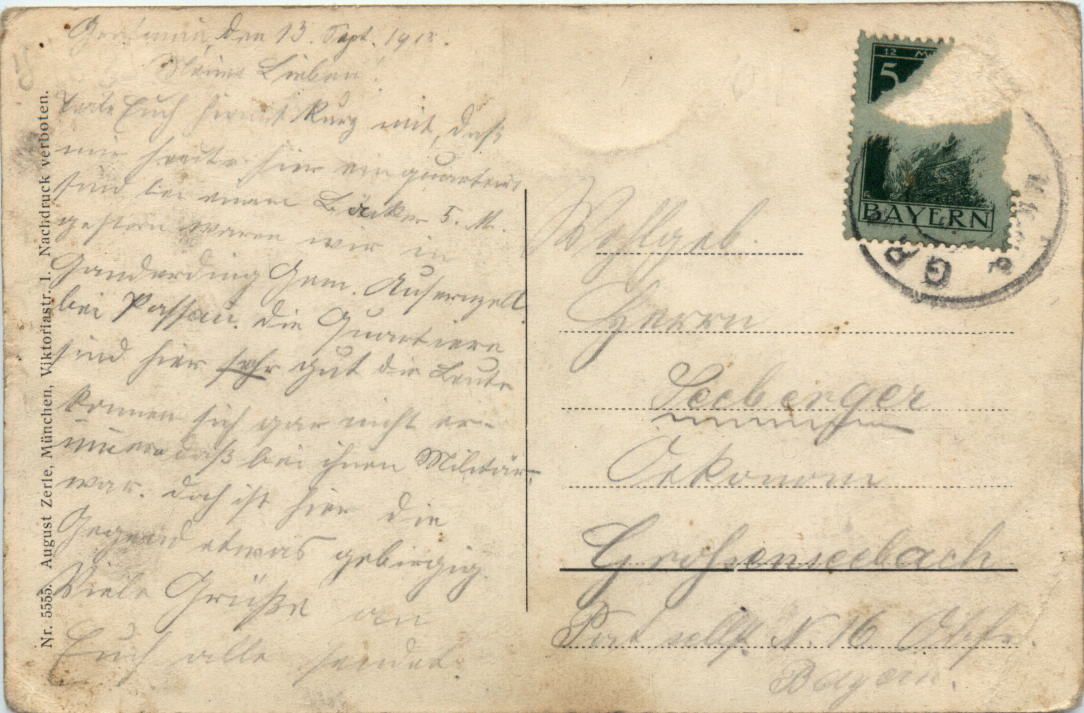 den 13. Sept. 191
Meine Lieben!
Teile Euch hiermit kurz mit, daß
wir heute hier einquartiert
sind bei einem Bäcker 5. M.
gestern waren wir in
Ganderding Gem. Ausernzell
bei Passau. die Quartiere
sind hier sehr gut die Leute
können sich gar nicht er-
innern daß bei ihnen Militär
war. doch ist hier die
Gegend etwas gebirgig.
Viele Grüße an
Euch alle sendet
Nr. 5555. August Zerle, München, Viktoriastr. 1. Nachdruck verboten.
5
BAYERN
Wohlgeb.
Herrn
Seeberger
Oekonom
Großenseebach
Post N. 16
Bayern.